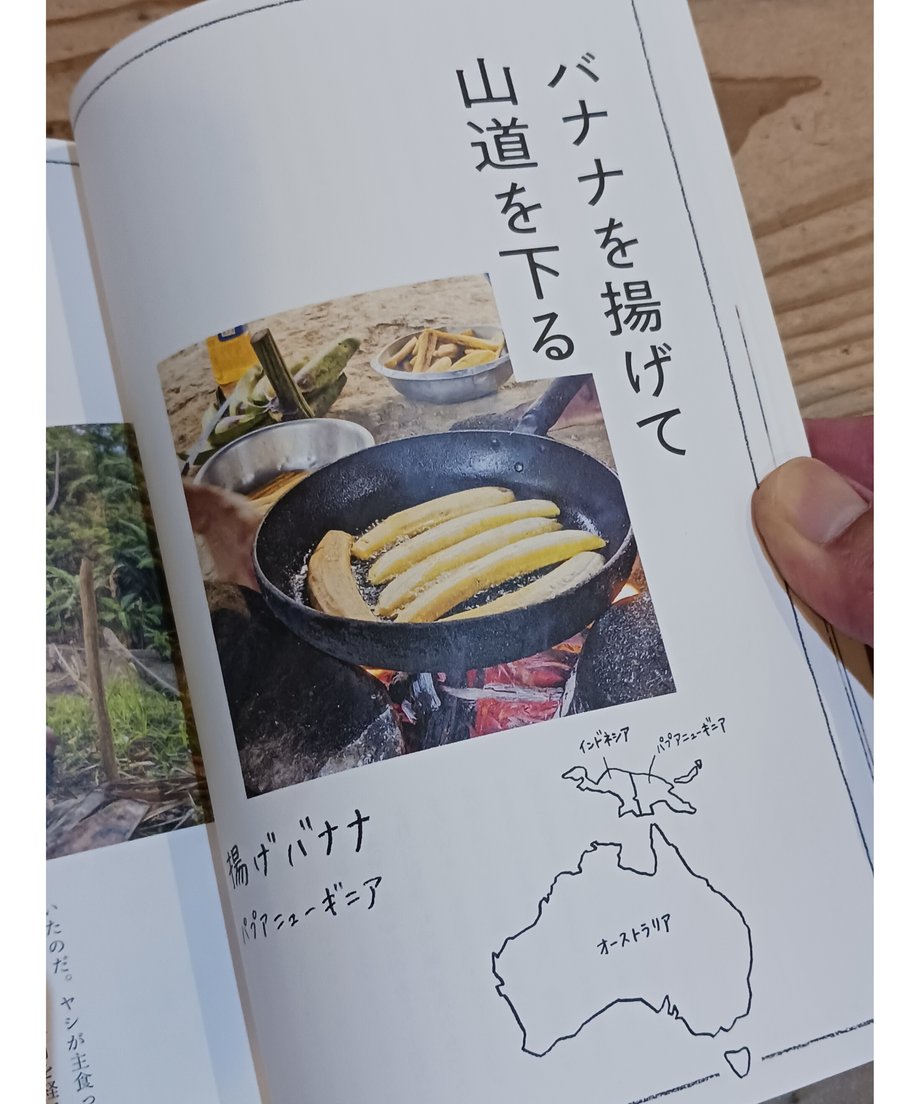 バナナを揚げて
山道を下る
インドネシア
パプアニューギニア
オーストラリア
揚げバナナ
パプアニューギニア
いたのだ。ヤシが主食っ